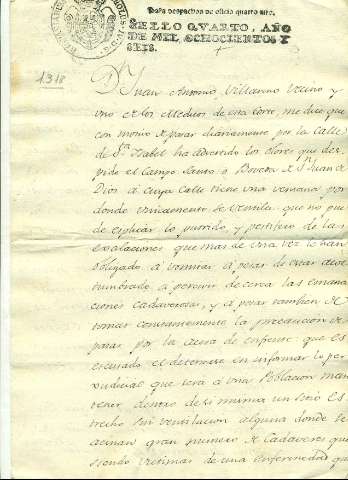 Para despachos de oficio quatro mrs.
SELLO QVARTO, AÑO
DE MIL OCHOCIENTOS Y
SEIS.
1318
Dn Juan Antonio Villarino Vecino y
uno de los Medicos de esta Corte, me dice que
con motivo de pasar diariamente por la Calle
de Sta Isabel ha advertido los olores que des
pide el Campo Santo o Boveda de Sn Juan de
Dios a cuya Calle tiene una ventana por
donde unicamente se ventila que no pue
de explicar lo putrido, y pestifero de las
exalaciones que mas de una vez le han
obligado a vomitar a pesar de estar acos
tumbrado a percivir de cerca las emana
ciones cadaverosas, y a pesar tambien de
tomar constantemente la precaucion de
pasar por la acera de enfrente: que es
escusado el detenerse en informar lo per
judicial que sera a una Poblacion man
tener dentro de si misma un sitio es
trecho sin ventilacion alguna donde se
acinan gran numero de Cadaveres que
siendo victimas de una enfermedad que